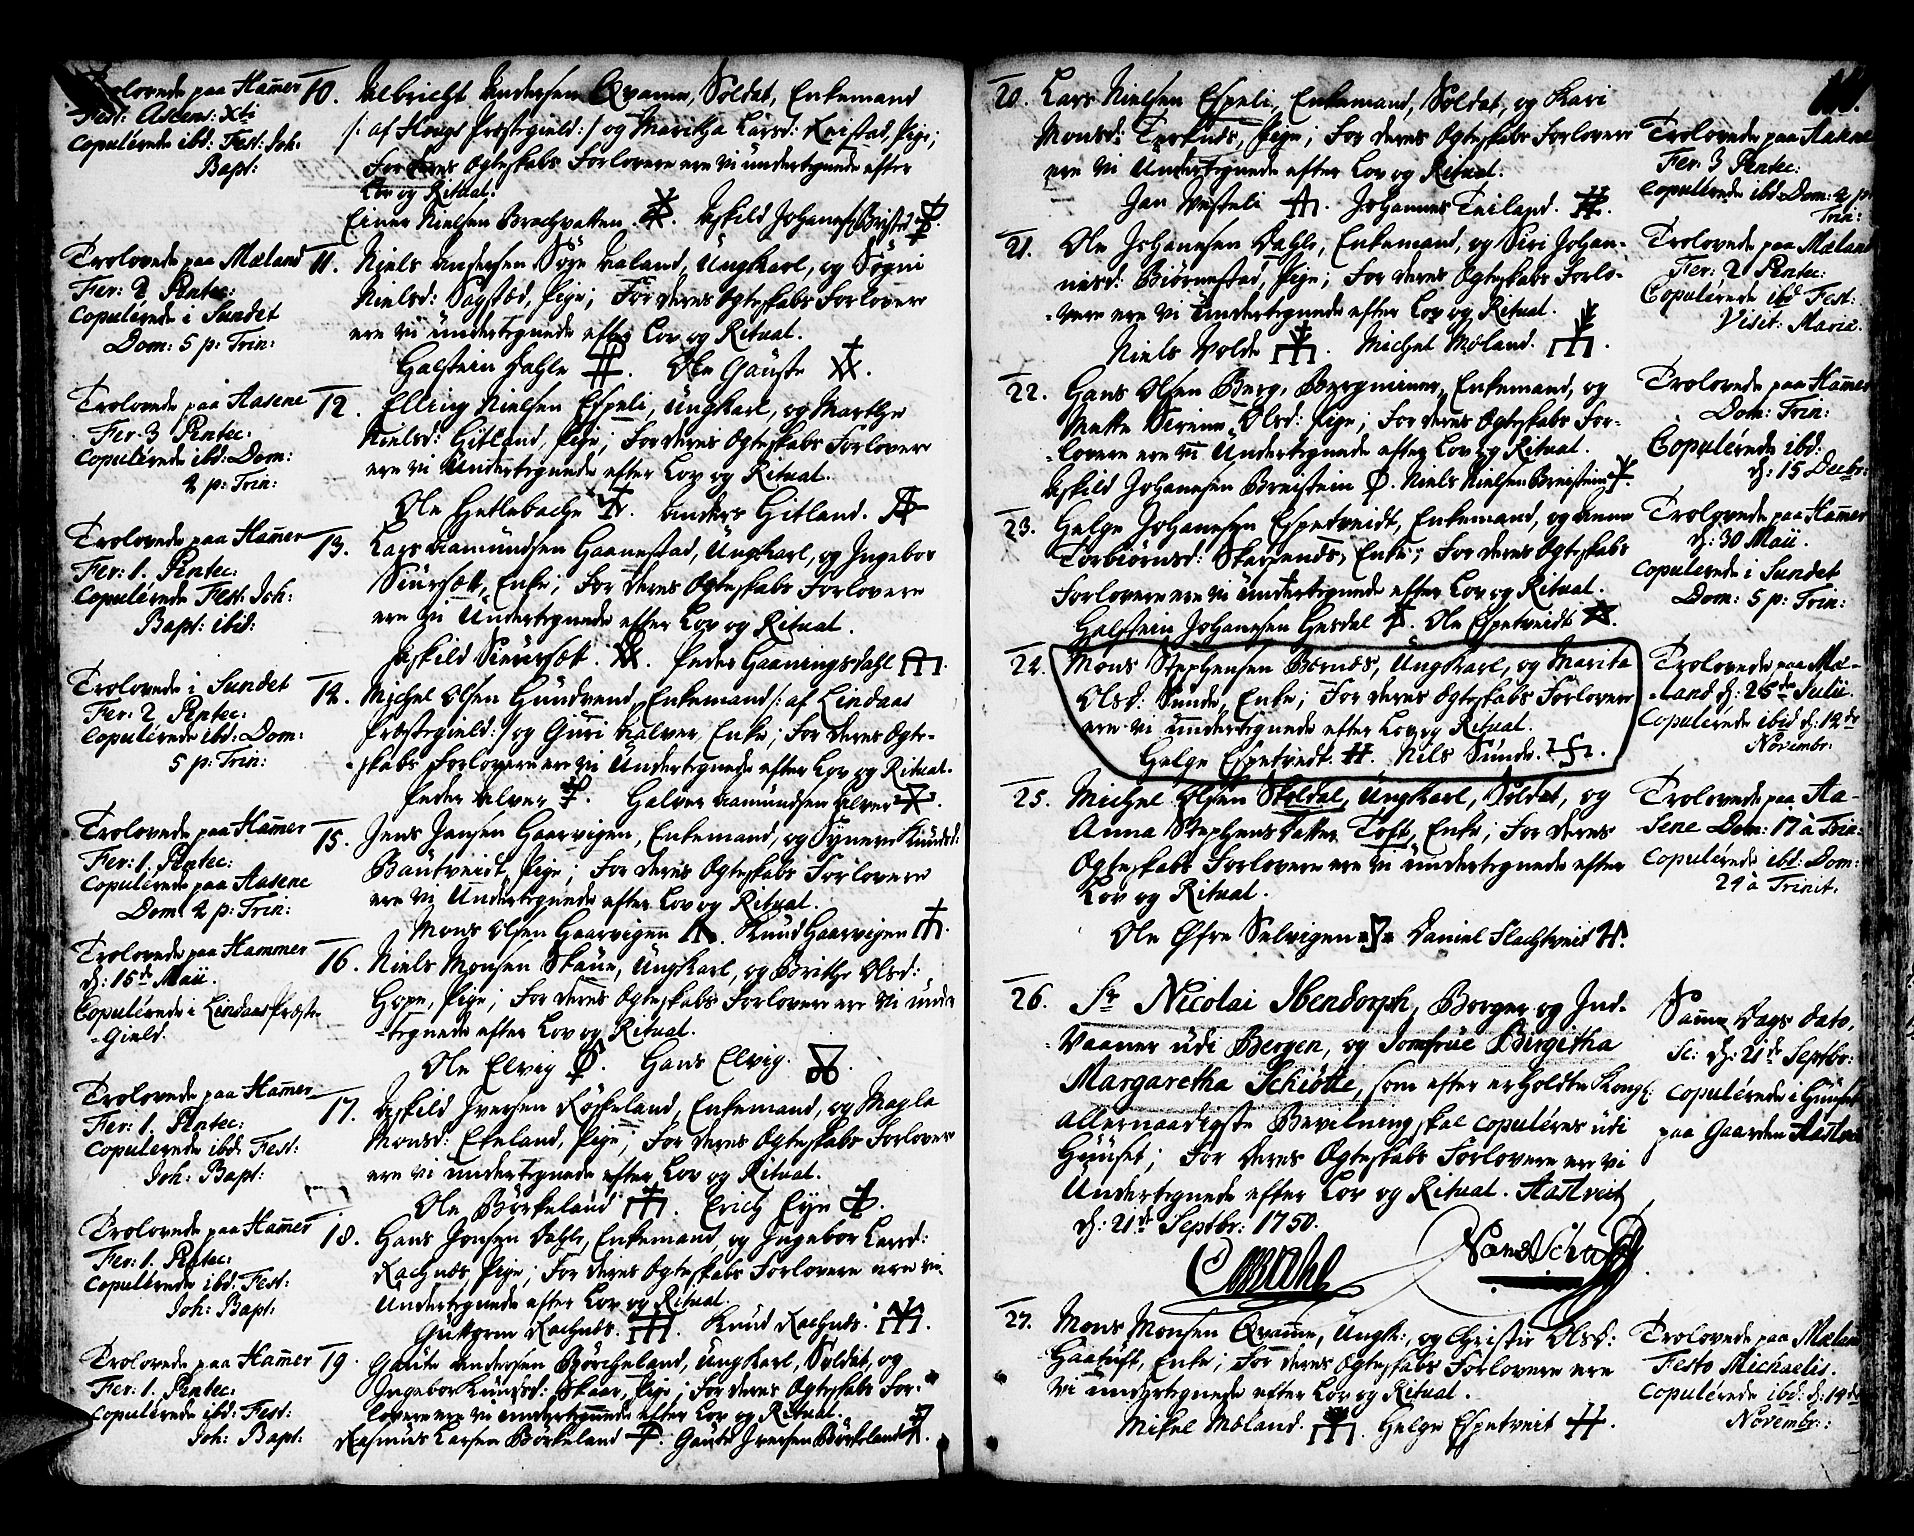 Trolovede paa Ham̄er
Fest: Ascens: Xti
Copulérede ibd: Fest: Joh.
Bapt:
10. Albricht Andersen Qvamme, Soldat, Enkemand
/: af Hougs Præstegield :/ og Maritha Larsd: Pige;
For deres Ægteskabs Forlovere ere vi undertegnede efter
Lov og Ritual.
Einer Nielsen Askild Johanes:
Trolovede paa Mæland
Fer: 2 Pentec:
Copulérede i Sundet
Dom: 5 p: Trin:
11. Niels Andersen Søge Ungkarl, og Søgni
Nielsd: Sagstad, Pige; For deres Ægteskabs Forlovere
ere vi undertegnede efter Lov og Ritual.
Halstein Dahle Ole Gauste
Trolovede paa Aasene
Fer: 3 Pentec:
Copulérede ibd: Dom:
2 p: Trin:
12. Elling Nielsen Espeli, Ungkarl, og Marthe
Nielsd: Hitland, Pige; For deres Ægteskabs Forlovere
ere vi Undertegnede efter Lov og Ritual.
Ole Hetlebache Anders Hitland.
Trolovede paa Ham̄er
Fer: 1. Pentec:
Copulérede Fest: Joh:
Bapt: ibid:
13. Lars Aamundsen Haanestad, Ungkarl, og Ingebor
Siursætt, Enke; For deres Ægteskabs Forlovere
ere vi Undertegnede efter Lov og Ritual.
Askild Siursætt. Peder Haaningsdahl
Trolovede i Sundet
Fer: 2 Pentec:
Copulérede ibd: Dom:
5 p: Trin:
14. Michel Olsen Hundvend, Enkemand /: af Lindaas
Præstegield :/ og Guri Alver, Enke; For deres Ægte-
skabs Forlovere ere vi Undertegnede efter Lov og Ritual.
Peder Alver Halver Aamundsen Alver
Trolovede paa Ham̄er
Fer: 1. Pentec:
Copulérede paa Aasene
Dom: 2 p: Trin:
15. Jens Jansen Haarvigen, Enkemand, og Synneve Knudsd:
Bautveidt, Pige; For deres Ægteskabs Forlovere
ere vi Undertegnede efter Lov og Ritual.
Mons Olsen Haarvigen Knud Haarvigen
Trolovede paa Hammer
d: 15de Maii.
Copulérede i Lindaas Præste-
-Gield.
16. Niels Monsen Skaue, Ungkarl, og Brithe Olsd:
Hope, Pige; For deres Ægteskabs Forlovere ere vi Under-
-tegnede efter Lov og Ritual.
Ole Elvig Hans Elvig.
Trolovede paa Ham̄er
Fer: 1. Pentec:
Copulérede ibd: Fest:
Joh: Bapt:
17. Askild Iversen Røskeland, Enkemand, og Magla
Monsd: Ekeland, Pige; For deres Ægteskabs Forlovere
ere vi undertegnede efter Lov og Ritual.
Ole Börkeland Erich
Trolovede paa Ham̄er
Fer: 1. Pentec:
Copulérede ibd: Fest:
Joh: Bapt:
18. Hans Jonsen Dahle, Enkemand, og Ingebor Larsd:
Rachnæs, Pige; For deres Ægteskabs Forlovere ere vi
Undertegnede efter Lov og Ritual.
Guttorm Rachnæs. Knud Rachnæs.
Trolovede paa Ham̄er
Fer: 1. Pentec:
Copulérede ibd: Fest:
Joh: Bapt:
19. Gaute Andersen Börcheland, Ungkarl, Soldat, og
Ingebor Knudsd: Skaar, Pige; For deres Ægteskabs For-
lovere ere vi undertegnede efter Lov og Ritual.
Rasmus Larsen Börkeland Gaute Iversen Börkeland
20. Lars Nielsen Espeli, Enkemand, Soldat, og Kari
Monsd: Pige; For deres Ægteskabs Forlovere
ere vi Undertegnede efter Lov og Ritual.
Jan Vesteli Johannes Teiland.
Trolovede paa Aasene
Fer: 3 Pentec:
Copulérede ibd: Dom: 2 p:
Trin:
21. Ole Johanesen Dahle, Enkemand, og Siri Johan-
nesd: Biörnestad, Pige; For deres Ægteskabs Forlo-
-vere ere vi Undertegnede efter Lov og Ritual.
Niels Volde Michel Mæland.
Trolovede paa Mæland
Fer: 2 Pentec:
Copulérede ibd Fest:
Visit: Mariæ.
22. Hans Olsen Berg, Enkemand, og
Mette Sirene Olsd: Pige; For deres Ægteskabs For-
-lovere ere vi Undertegnede efter Lov og Ritual.
Askild Johanesen Breistein Niels Nielsen Breistein
Trolovede paa Ham̄er
Dom: Trin:
Copulérede ibd:
d: 15 Decbr:
23. Helge Johanesen Espetveidt, Enkemand, og Anne
Torbiörnsd: Skarpenæs, Enke; For deres Ægteskabs
Forlovere ere vi undertegnede efter Lov og Ritual.
Halstein Johanesen Hesdal Ole Espetveidt
Trolovede paa Ham̄er
d: 30 Maii.
Copulerede i Sundet
Dom: 5 p: Trin:
24. Mons Stephensen Bernæs, Ungkarl, og Marita
Olsd: Sunde, Enke; For deres Ægteskabs Forlovere
ere vi undertegnede efter Lov og Ritual.
Helge Espetvedt. Nils Sunde.
Trolovede paa Mæ-
-land d: 26de Julii.
Copulérede ibid d: 12de
Novembr:
25. Michel Olsen Skoldal, Ungkarl, Soldat, og
Anna Stephens Datter Toft, Enke; For deres
Ægteskabs Forlovere ere vi undertegnede efter
Lov og Ritual.
Ole Øfre Selvigen Daniel Flachtveit
Trolovede paa Aa-
sene Dom: 17 à Trin:
Copulérede ibd: Dom:
24 à Trinit.
26. Sr Nicolai Ibendorph, Borger og Ind-
Vaaner udi Bergen, og Jomfrue Birgitha
Margaretha Schiötte, som efter erholdte Kongl:
allernaadigste Bevilning skal copuléres udi
Huuset; For deres Ægteskabs Forlovere ere vi
Undertegnede efter Lov og Ritual. Aastveit
d: 21de Septbr: 1750.
Samme Dags dato,
Sc: d: 21de Septbr:
Copulérede i Huuset
paa Gaarden Aastveit
27. Mons Monsen Qvamme, Ungk:, og Christi Olsd:
Haatuft, Enke; For deres Ægteskabs Forlovere ere
vi undertegnede efter Lov og Ritual.
Mikel Mæland. Helge Espetveit
Trolovede paa Mæland
Festo Michaelis.
Copulérede ibd: d: 19de
Novembr: